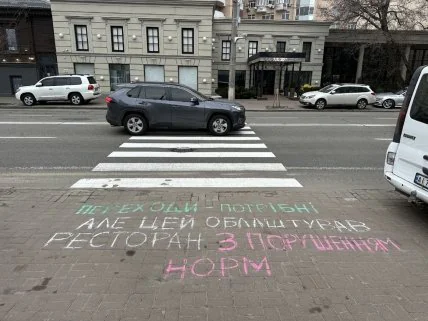 ПЕРЕХОДИ ПОТРІБНІ
АЛЕ ЦЕЙ ОБЛАШТУВАВ
РЕСТОРАН З ПОРУШЕННЯМ
НОРМ